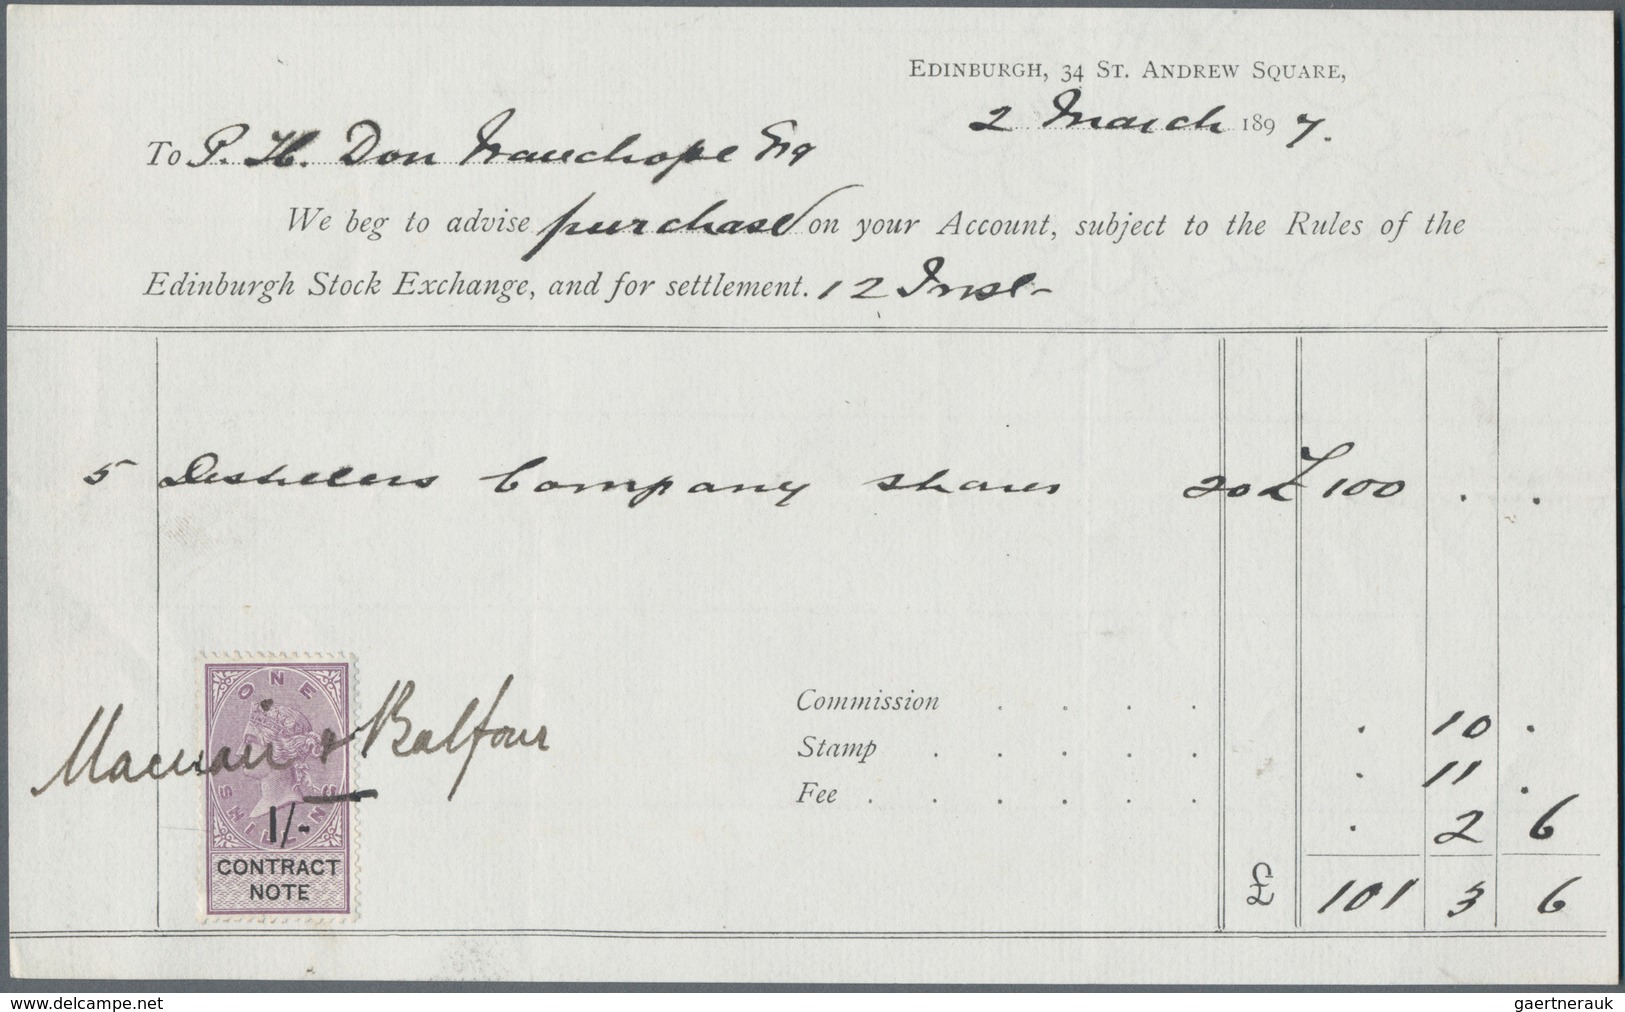 EDINBURGH, 34 ST. ANDREW SQUARE,
2 March 1897.
To P. H. Don Wauchope Esq
We beg to advise purchase on your Account, subject to the Rules of the
Edinburgh Stock Exchange, and for settlement. 12 Inst-
5 Distillers Company shares 20 £ 100 . .
ONE
SHILLING
1/-
CONTRACT
NOTE
& Balfour
Commission . . . . . 10 .
Stamp . . . . . . 11 .
Fee . . . . . . . 2 6
£ 101 3 6
www.delcampe.net
gaertnerauk